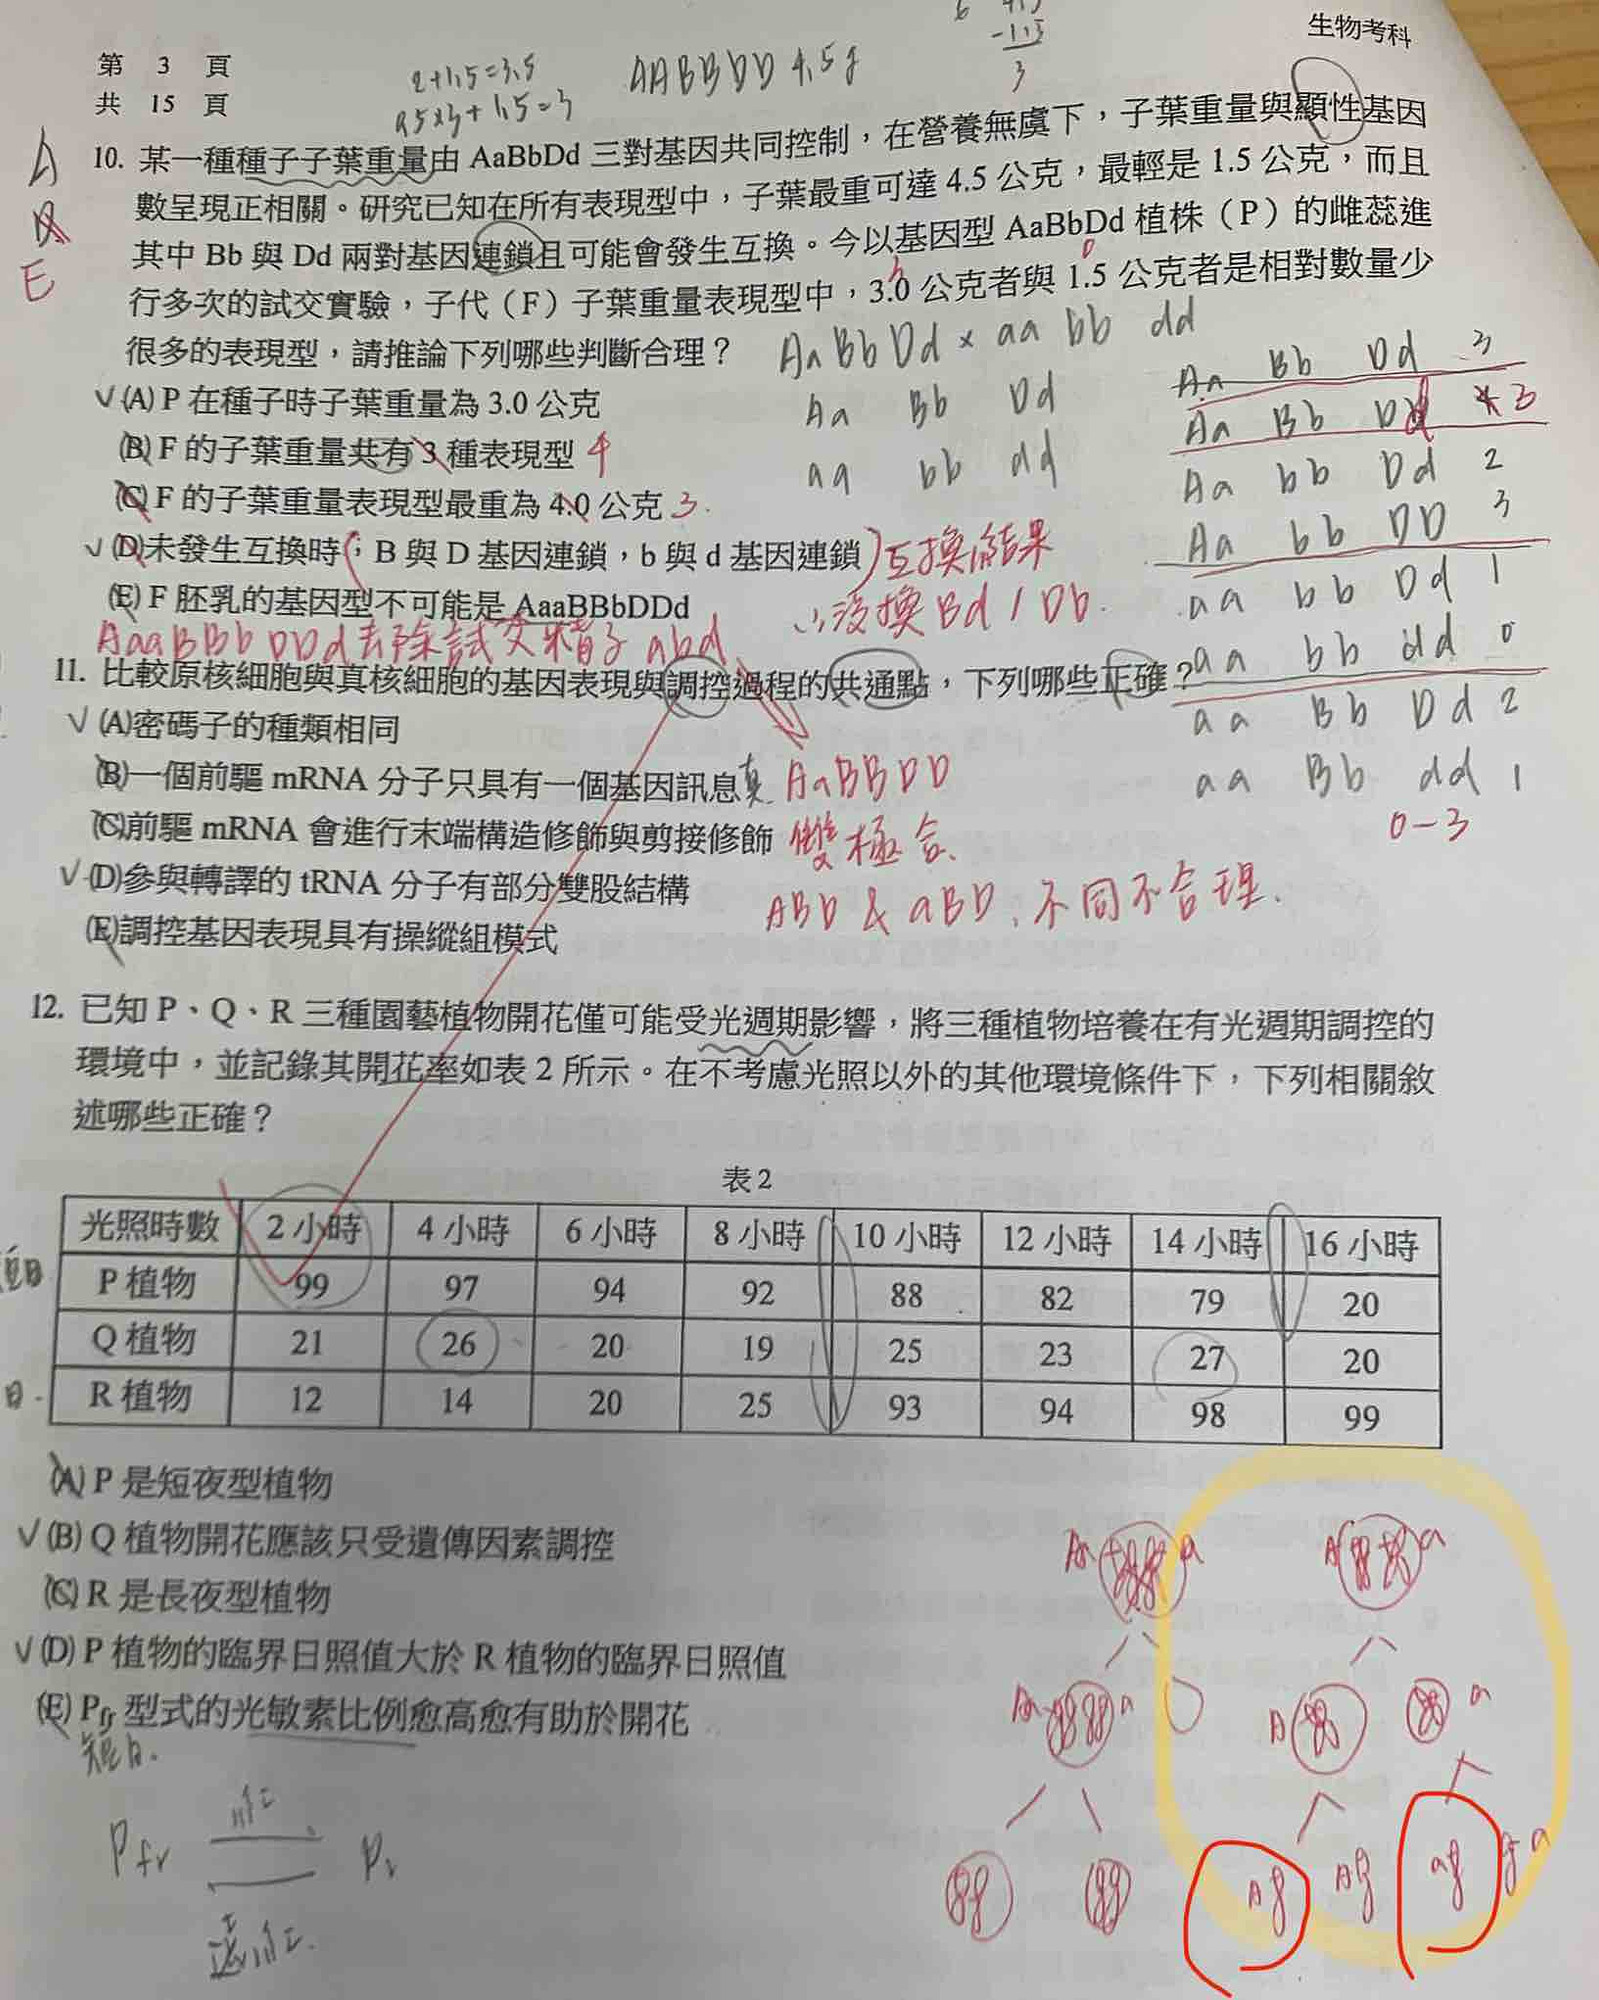 生物考科
第 3 頁
共 15 頁
2+1.5=3.5
0.5×3+1.5=3
AABBDD 4.5g
-1.5
3
A
E
10. 某一種種子子葉重量由 AaBbDd 三對基因共同控制，在營養無虞下，子葉重量與顯性基因
數呈現正相關。研究已知在所有表現型中，子葉最重可達 4.5 公克，最輕是 1.5 公克，而且
其中 Bb 與 Dd 兩對基因連鎖且可能會發生互換。今以基因型 AaBbDd 植株（P）的雌蕊進
行多次的試交實驗，子代（F）子葉重量表現型中，3.0 公克者與 1.5 公克者是相對數量少
很多的表現型，請推論下列哪些判斷合理？
AaBbDd × aa bb dd
✓ (A) P 在種子時子葉重量為 3.0 公克
(B) F 的子葉重量共有 3 種表現型 4
(C) F 的子葉重量表現型最重為 4.0 公克 3.
✓ (D)未發生互換時，B 與 D 基因連鎖，b 與 d 基因連鎖 互換的結果
(E) F 胚乳的基因型不可能是 AaaBBbDDd
∴沒換 Bd / Db.
AaaBBbDDd去除試交精子 abd
Aa Bb Dd
aa bb dd
Aa Bb Dd 3
Aa Bb Dd 3
Aa bb Dd 2
Aa bb DD 3
aa bb Dd 1
aa bb dd 0
aa Bb Dd 2
aa Bb dd 1
0-3
11. 比較原核細胞與真核細胞的基因表現與調控過程的共通點，下列哪些正確？
✓ (A)密碼子的種類相同
(B)一個前驅 mRNA 分子只具有一個基因訊息 真
(C)前驅 mRNA 會進行末端構造修飾與剪接修飾
✓ (D)參與轉譯的 tRNA 分子有部分雙股結構
(E)調控基因表現具有操縱組模式
AaBBDD
雙極合.
ABD & aBD, 不同不合理.
12. 已知 P、Q、R 三種園藝植物開花僅可能受光週期影響，將三種植物培養在有光週期調控的
環境中，並記錄其開花率如表 2 所示。在不考慮光照以外的其他環境條件下，下列相關敘
述哪些正確？
表 2
光照時數 2 小時 4 小時 6 小時 8 小時 10 小時 12 小時 14 小時 16 小時
短日 P 植物 99 97 94 92 88 82 79 20
Q 植物 21 26 20 19 25 23 27 20
日 R 植物 12 14 20 25 93 94 98 99
(A) P 是短夜型植物
✓ (B) Q 植物開花應該只受遺傳因素調控
(C) R 是長夜型植物
✓ (D) P 植物的臨界日照值大於 R 植物的臨界日照值
(E) Pfr 型式的光敏素比例愈高愈有助於開花
短日.
Pfr 紅 Pr
遠紅.
A a A a
A a A a
A A a a